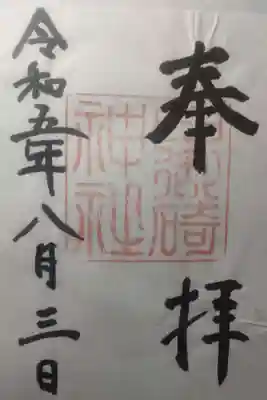 奉拝
日御碕神社
令和五年八月三日